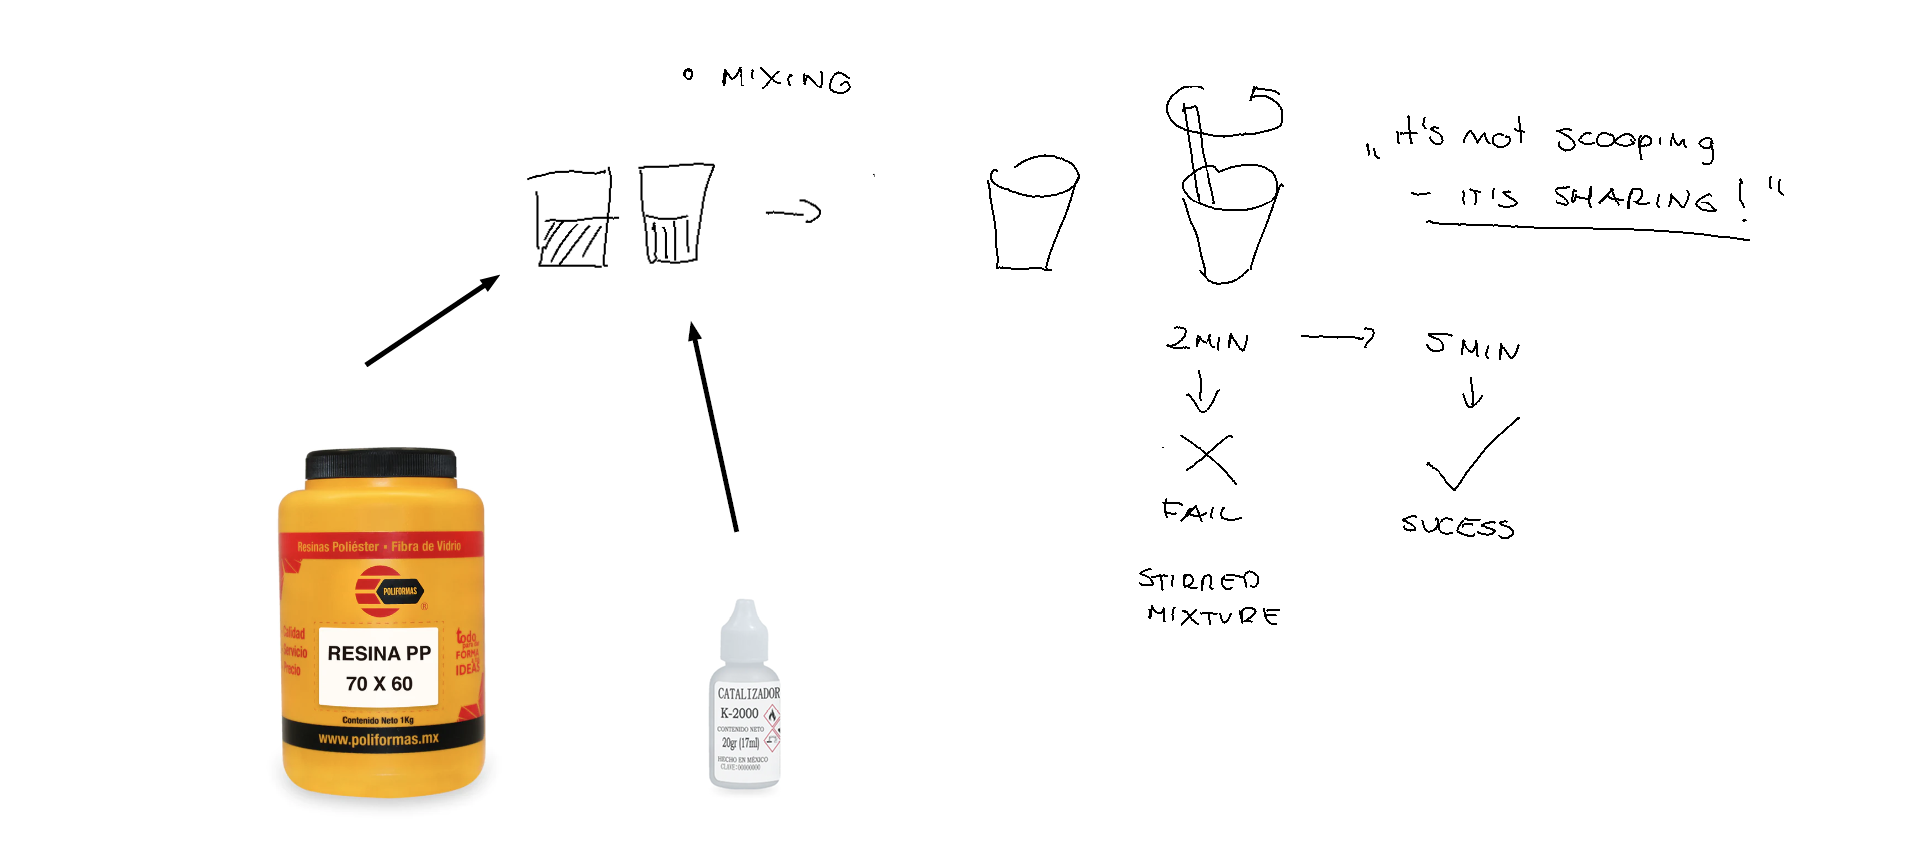 MIXING
"It's not scooping
- IT'S SHARING!"
2 MIN → 5 MIN
FAIL
SUCESS
STIRRED
MIXTURE
Resinas Poliéster • Fibra de Vidrio
POLIFORMAS
Calidad
Servicio
Precio
todo
FORMA
IDEAS
RESINA PP
70 X 60
Contenido Neto 1Kg
www.poliformas.mx
CATALIZADOR
K-2000
CONTENIDO NETO
20gr (17ml)
HECHO EN MÉXICO
CLAVE:00000000